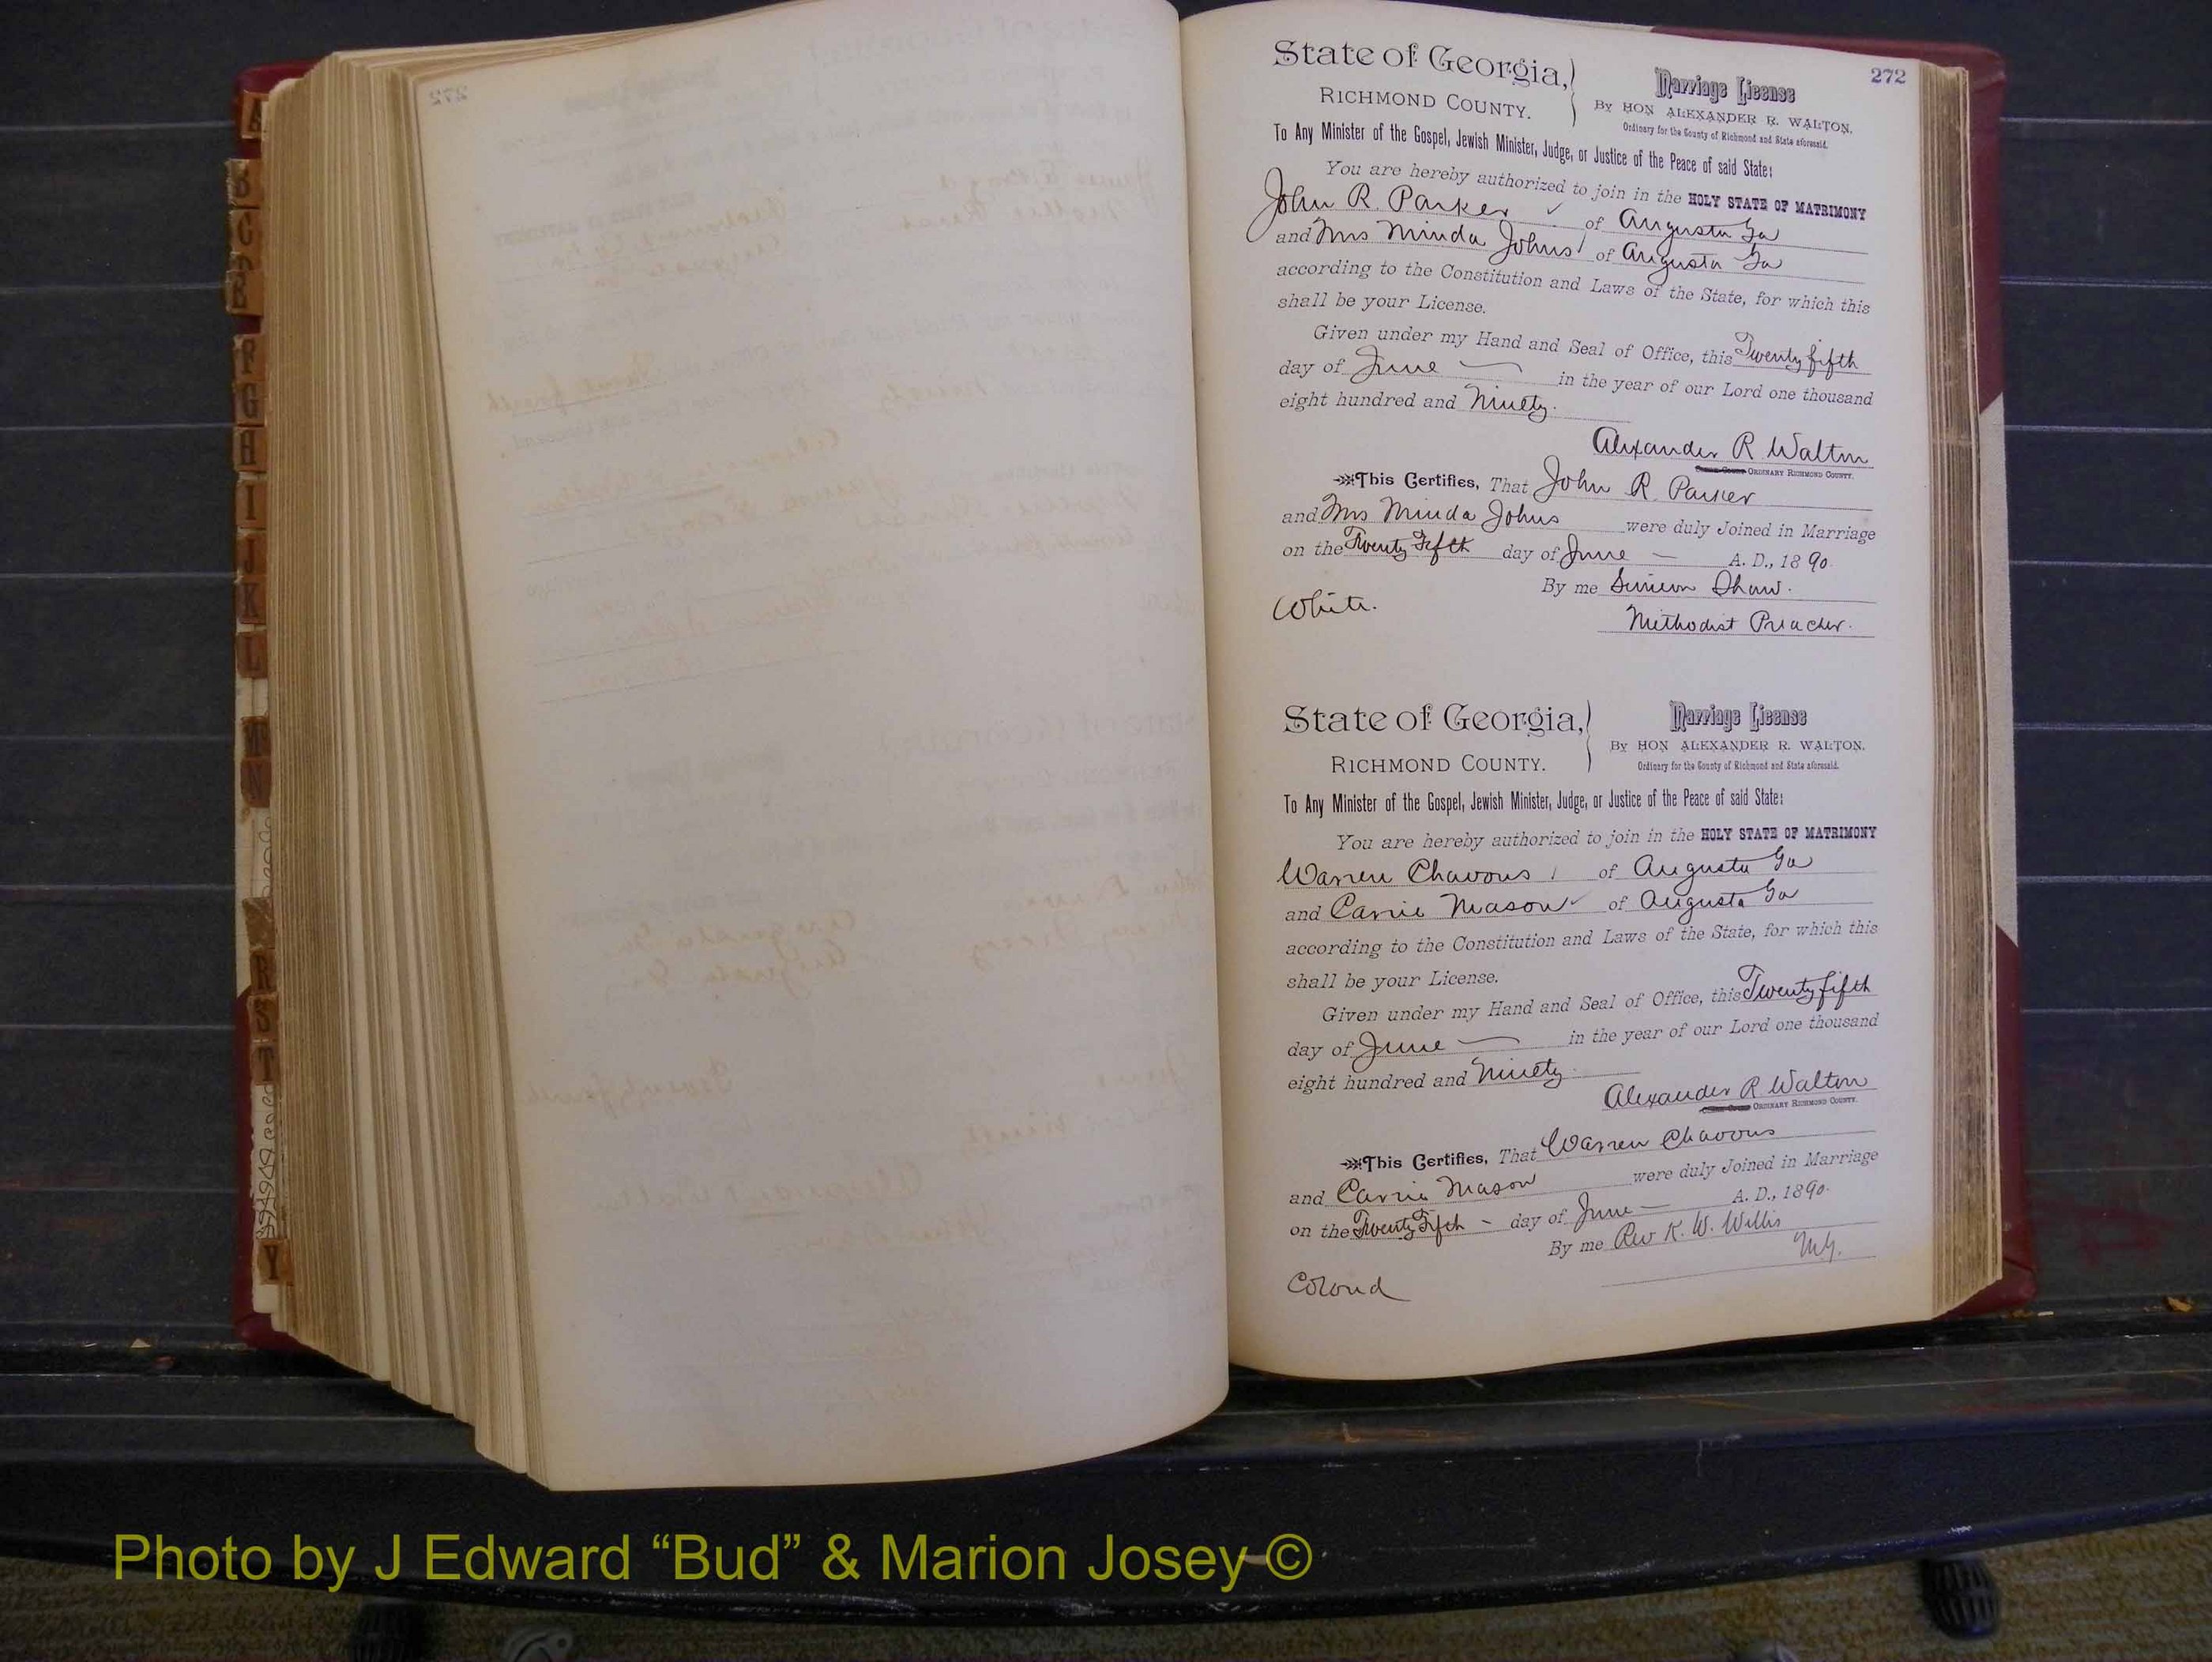 272
State of Georgia,
RICHMOND COUNTY.
Marriage License
By HON ALEXANDER R. WALTON,
Ordinary for the County of Richmond and State aforesaid.
To Any Minister of the Gospel, Jewish Minister, Judge, or Justice of the Peace of said State:
You are hereby authorized to join in the HOLY STATE OF MATRIMONY
John R. Parker of Augusta Ga
and Mrs Minda Johns of Augusta Ga
according to the Constitution and Laws of the State, for which this
shall be your License.
Given under my Hand and Seal of Office, this Twenty fifth
day of June in the year of our Lord one thousand
eight hundred and Ninety.
Alexander R Walton
ORDINARY RICHMOND COUNTY.
This Certifies, That John R. Parker
and Mrs Minda Johns were duly Joined in Marriage
on the Twenty Fifth day of June A. D., 1890.
By me Simeon Shaw.
White. Methodist Preacher.
State of Georgia,
RICHMOND COUNTY.
Marriage License
By HON ALEXANDER R. WALTON,
Ordinary for the County of Richmond and State aforesaid.
To Any Minister of the Gospel, Jewish Minister, Judge, or Justice of the Peace of said State:
You are hereby authorized to join in the HOLY STATE OF MATRIMONY
Warren Chavous of Augusta Ga
and Carrie Mason of Augusta Ga
according to the Constitution and Laws of the State, for which this
shall be your License.
Given under my Hand and Seal of Office, this Twenty fifth
day of June in the year of our Lord one thousand
eight hundred and Ninety.
Alexander R Walton
ORDINARY RICHMOND COUNTY.
This Certifies, That Warren Chavous
and Carrie Mason were duly Joined in Marriage
on the Twenty Fifth day of June A. D., 1890.
By me Rev K. W. Willis
M.G.
Colored
Photo by J Edward “Bud” & Marion Josey ©